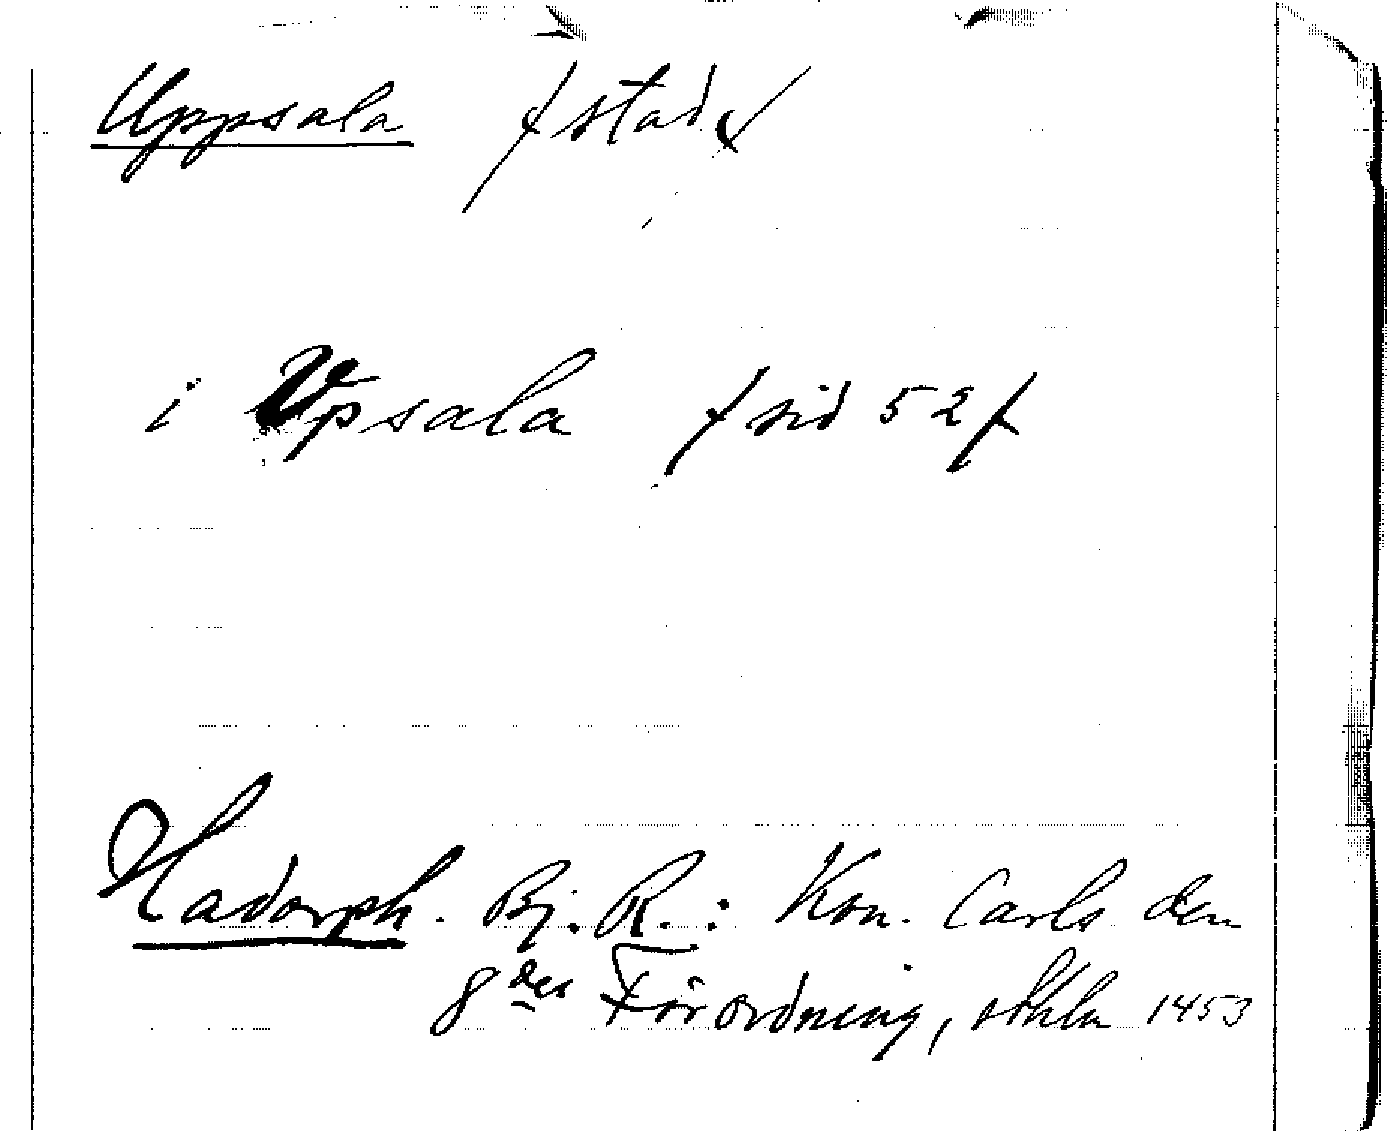 Uppsala /stad/
i Vpsala /sid 52/
Hadorph. Bj. R.: Kon. Carls den
8des Förordning, 1453